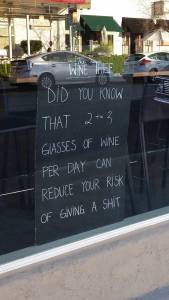 WINE THIEF
DID YOU KNOW
THAT 2-3
GLASSES OF WINE
PER DAY CAN
REDUCE YOUR RISK
OF GIVING A SHIT